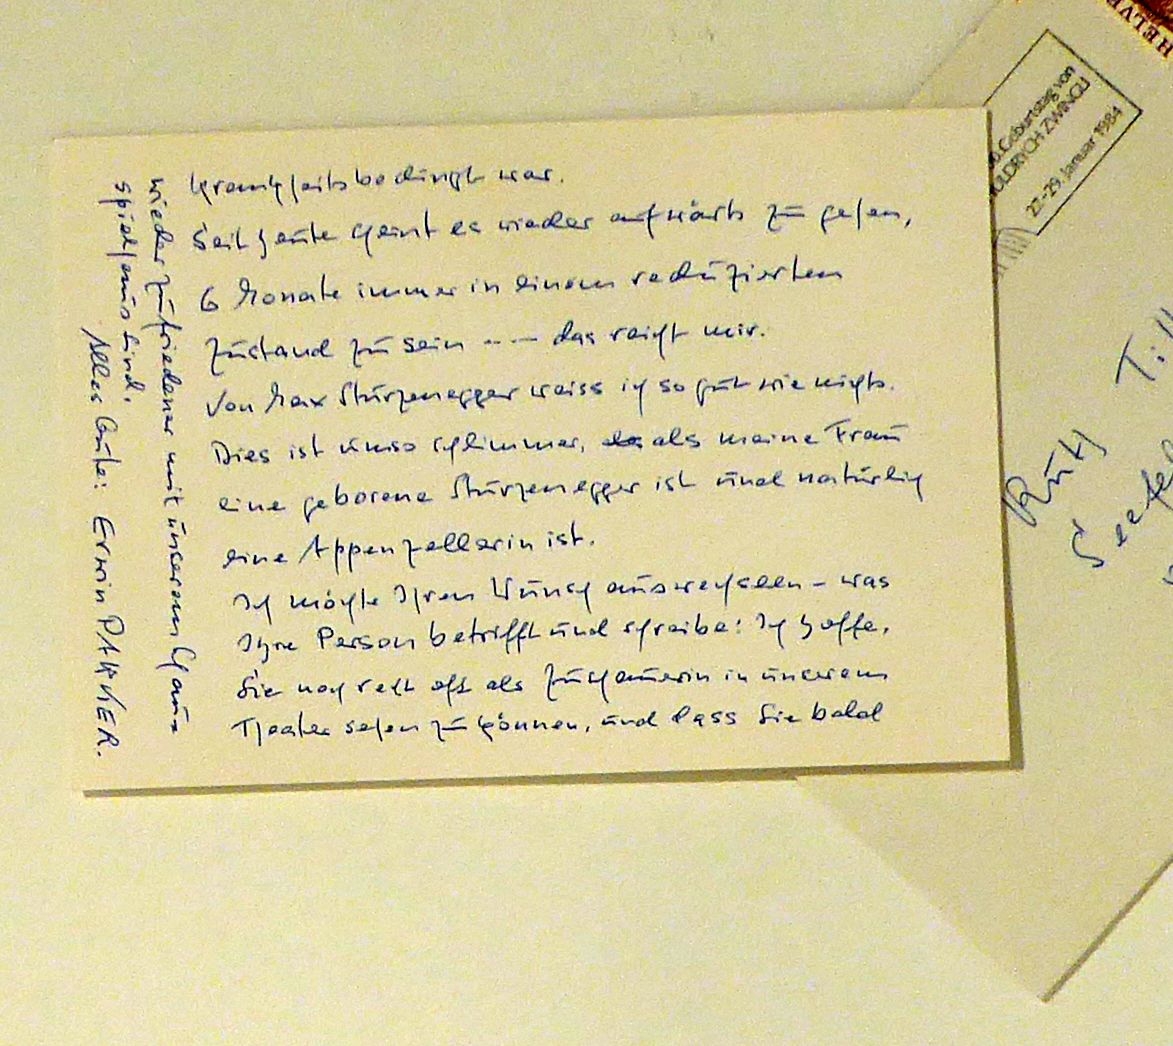 krankheitsbedingt war.
Seit heute scheint es wieder aufwärts zu gehen,
6 Monate immer in einem reduzierten
Zustand zu sein -- das reicht mir.
Von Max Sturzenegger weiss ich so gut wie nichts.
Dies ist umso schlimmer, als meine Frau
eine geborene Sturzenegger ist und natürlich
eine Appenzellerin ist.
Ich möchte Ihren Wunsch auswechseln – was
Ihre Person betrifft und schreibe: Ich hoffe,
Sie noch recht oft als Zuschauerin in unserem
Theater sehen zu können, und dass Sie bald
wieder zufriedener mit unserem Schau=
spielhaus sind.
Alles Gute: Erwin PARKER.
HELVE
0. Geburtstag von
ULDRYCH ZWINGLI
22.-29. Januar 1984
Ruth Til
Seefel